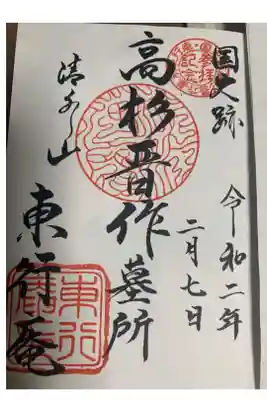 国史跡
令和二年
二月七日
高杉晋作墓所
清水山
東行庵
東行庵